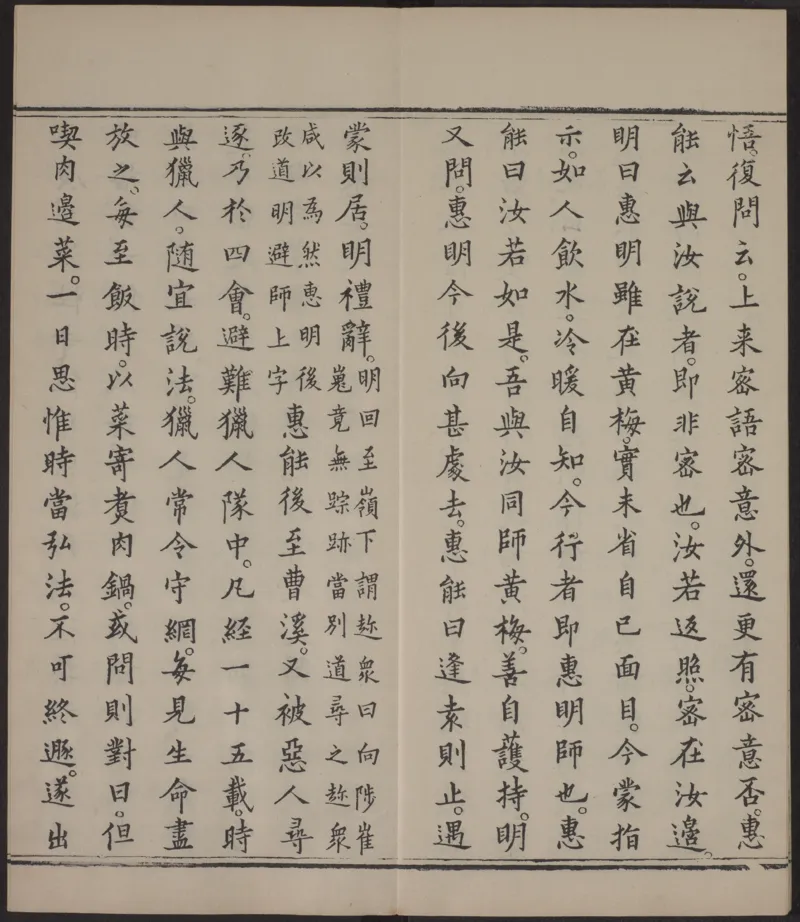 悟。復問云。上来密語密意外。還更有密意否。惠
能云與汝說者。即非密也。汝若返照。密在汝邉。
明曰惠明雖在黄梅。實未省自己面目。今蒙指
示。如人飲水。冷暖自知。今行者即惠明師也。惠
能曰汝若如是。吾與汝同師黄梅。善自護持。明
又問。惠明今後向甚處去。惠能曰逢袁則止。遇
蒙則居。明禮辭。明回至嶺下謂趂衆曰向陟崔
嵬竟無踪跡當別道尋之趂衆
咸以為然惠明後
改道明避師上字
惠能後至曹溪。又被惡人尋
逐。乃於四會。避難獵人隊中。凡經一十五載。時
與獵人。随宜說法。獵人常令守網。每見生命盡
放之。每至飯時。以菜寄煑肉鍋。或問則對曰。但
喫肉邊菜。一日思惟時當弘法。不可終遯。遂出